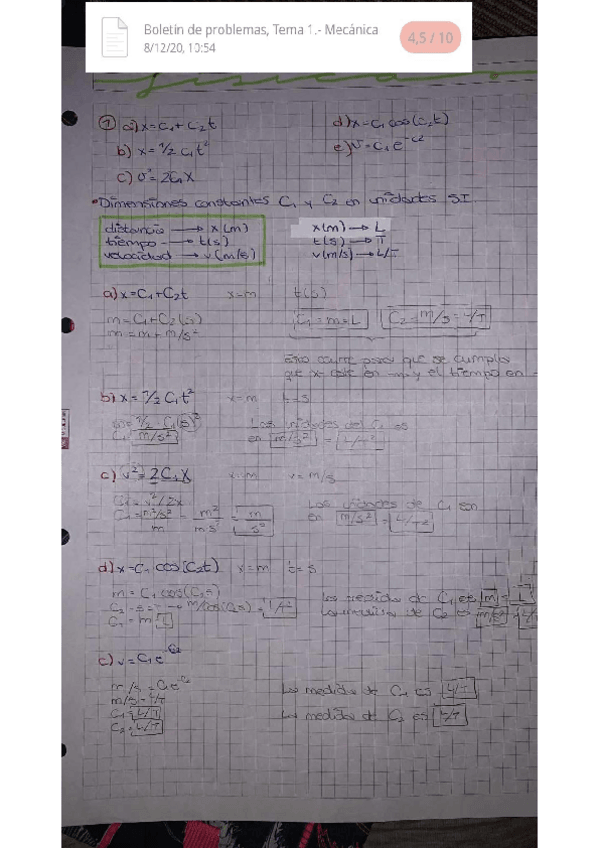 Boletín de problemas, Tema 1.- Mecánica
8/12/20, 10:54
4,5 / 10
física
① a) x=C₁+C₂t
d) x=C₁ cos(C₂t)
b) x=1/2 C₁t²
e) v=C₁e^-C2
c) v²=2C₁X
•Dimensiones constantes C₁ y C₂ en unidades SI.
distancia → x(m)
tiempo → t(s)
velocidad → v(m/s)
x(m) → L
t(s) → T
v(m/s) → L/T
a) x=C₁+C₂t x=m t(s)
m=C₁+C₂(s)
C₁=m=L C₂=m/s=L/T
Esto ocurre para que se cumpla
que x esté en m y el tiempo en
b) x=1/2 C₁t² x=m t=s
m=1/2 C₁(s)²
C₁=m/s²
Las unidades del C₁ es
en m/s² = L/T²
c) v²=2C₁X x=m v=m/s
C₁=v²/2x
Las unidades de C₁ son
en m/s² = L/T²
d) x=C₁ cos(C₂t) x=m t=s
m=C₁ cos(C₂s)
C₁=m L
La medida de C₁ es m = L
La medida de C₂ es
e) v=C₁e^-C2
m/s=C₁e^-C2
m/s=L/T
C₁=L/T
C₂=L/T
La medida de C₁ es L/T
La medida de C₂ es L/T